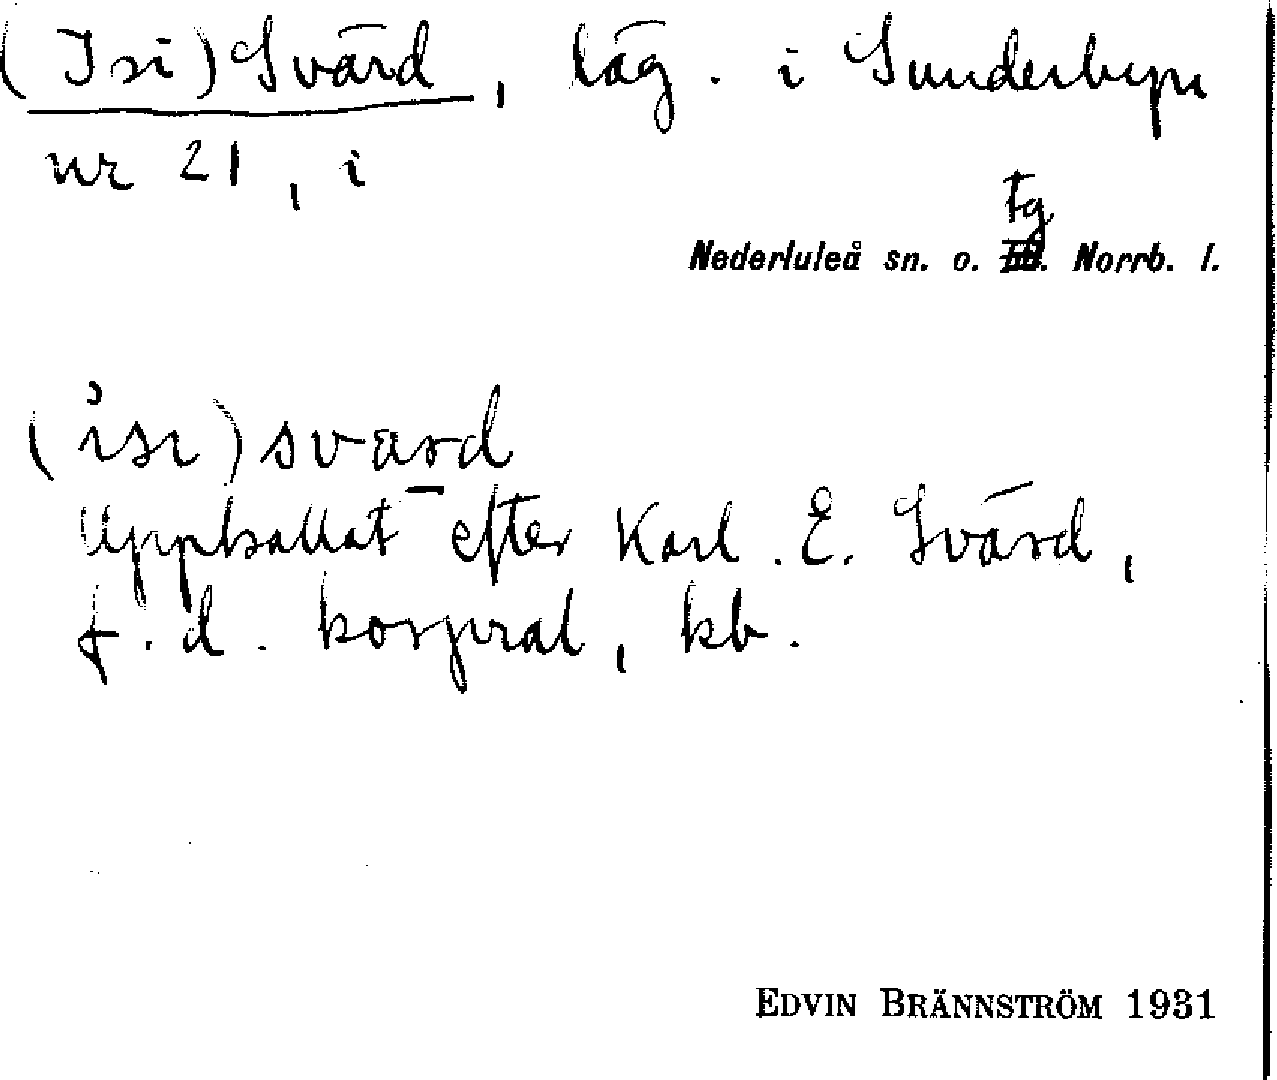 (Isi) Svärd, läg. i Sunderbyn
nr 21, i
tg
Nederluleå sn. o. Norrb. l.
(isi) svard
Uppkallat efter Karl. E. Svärd,
f. d. korpral, kb.
EDVIN BRÄNNSTRÖM 1931